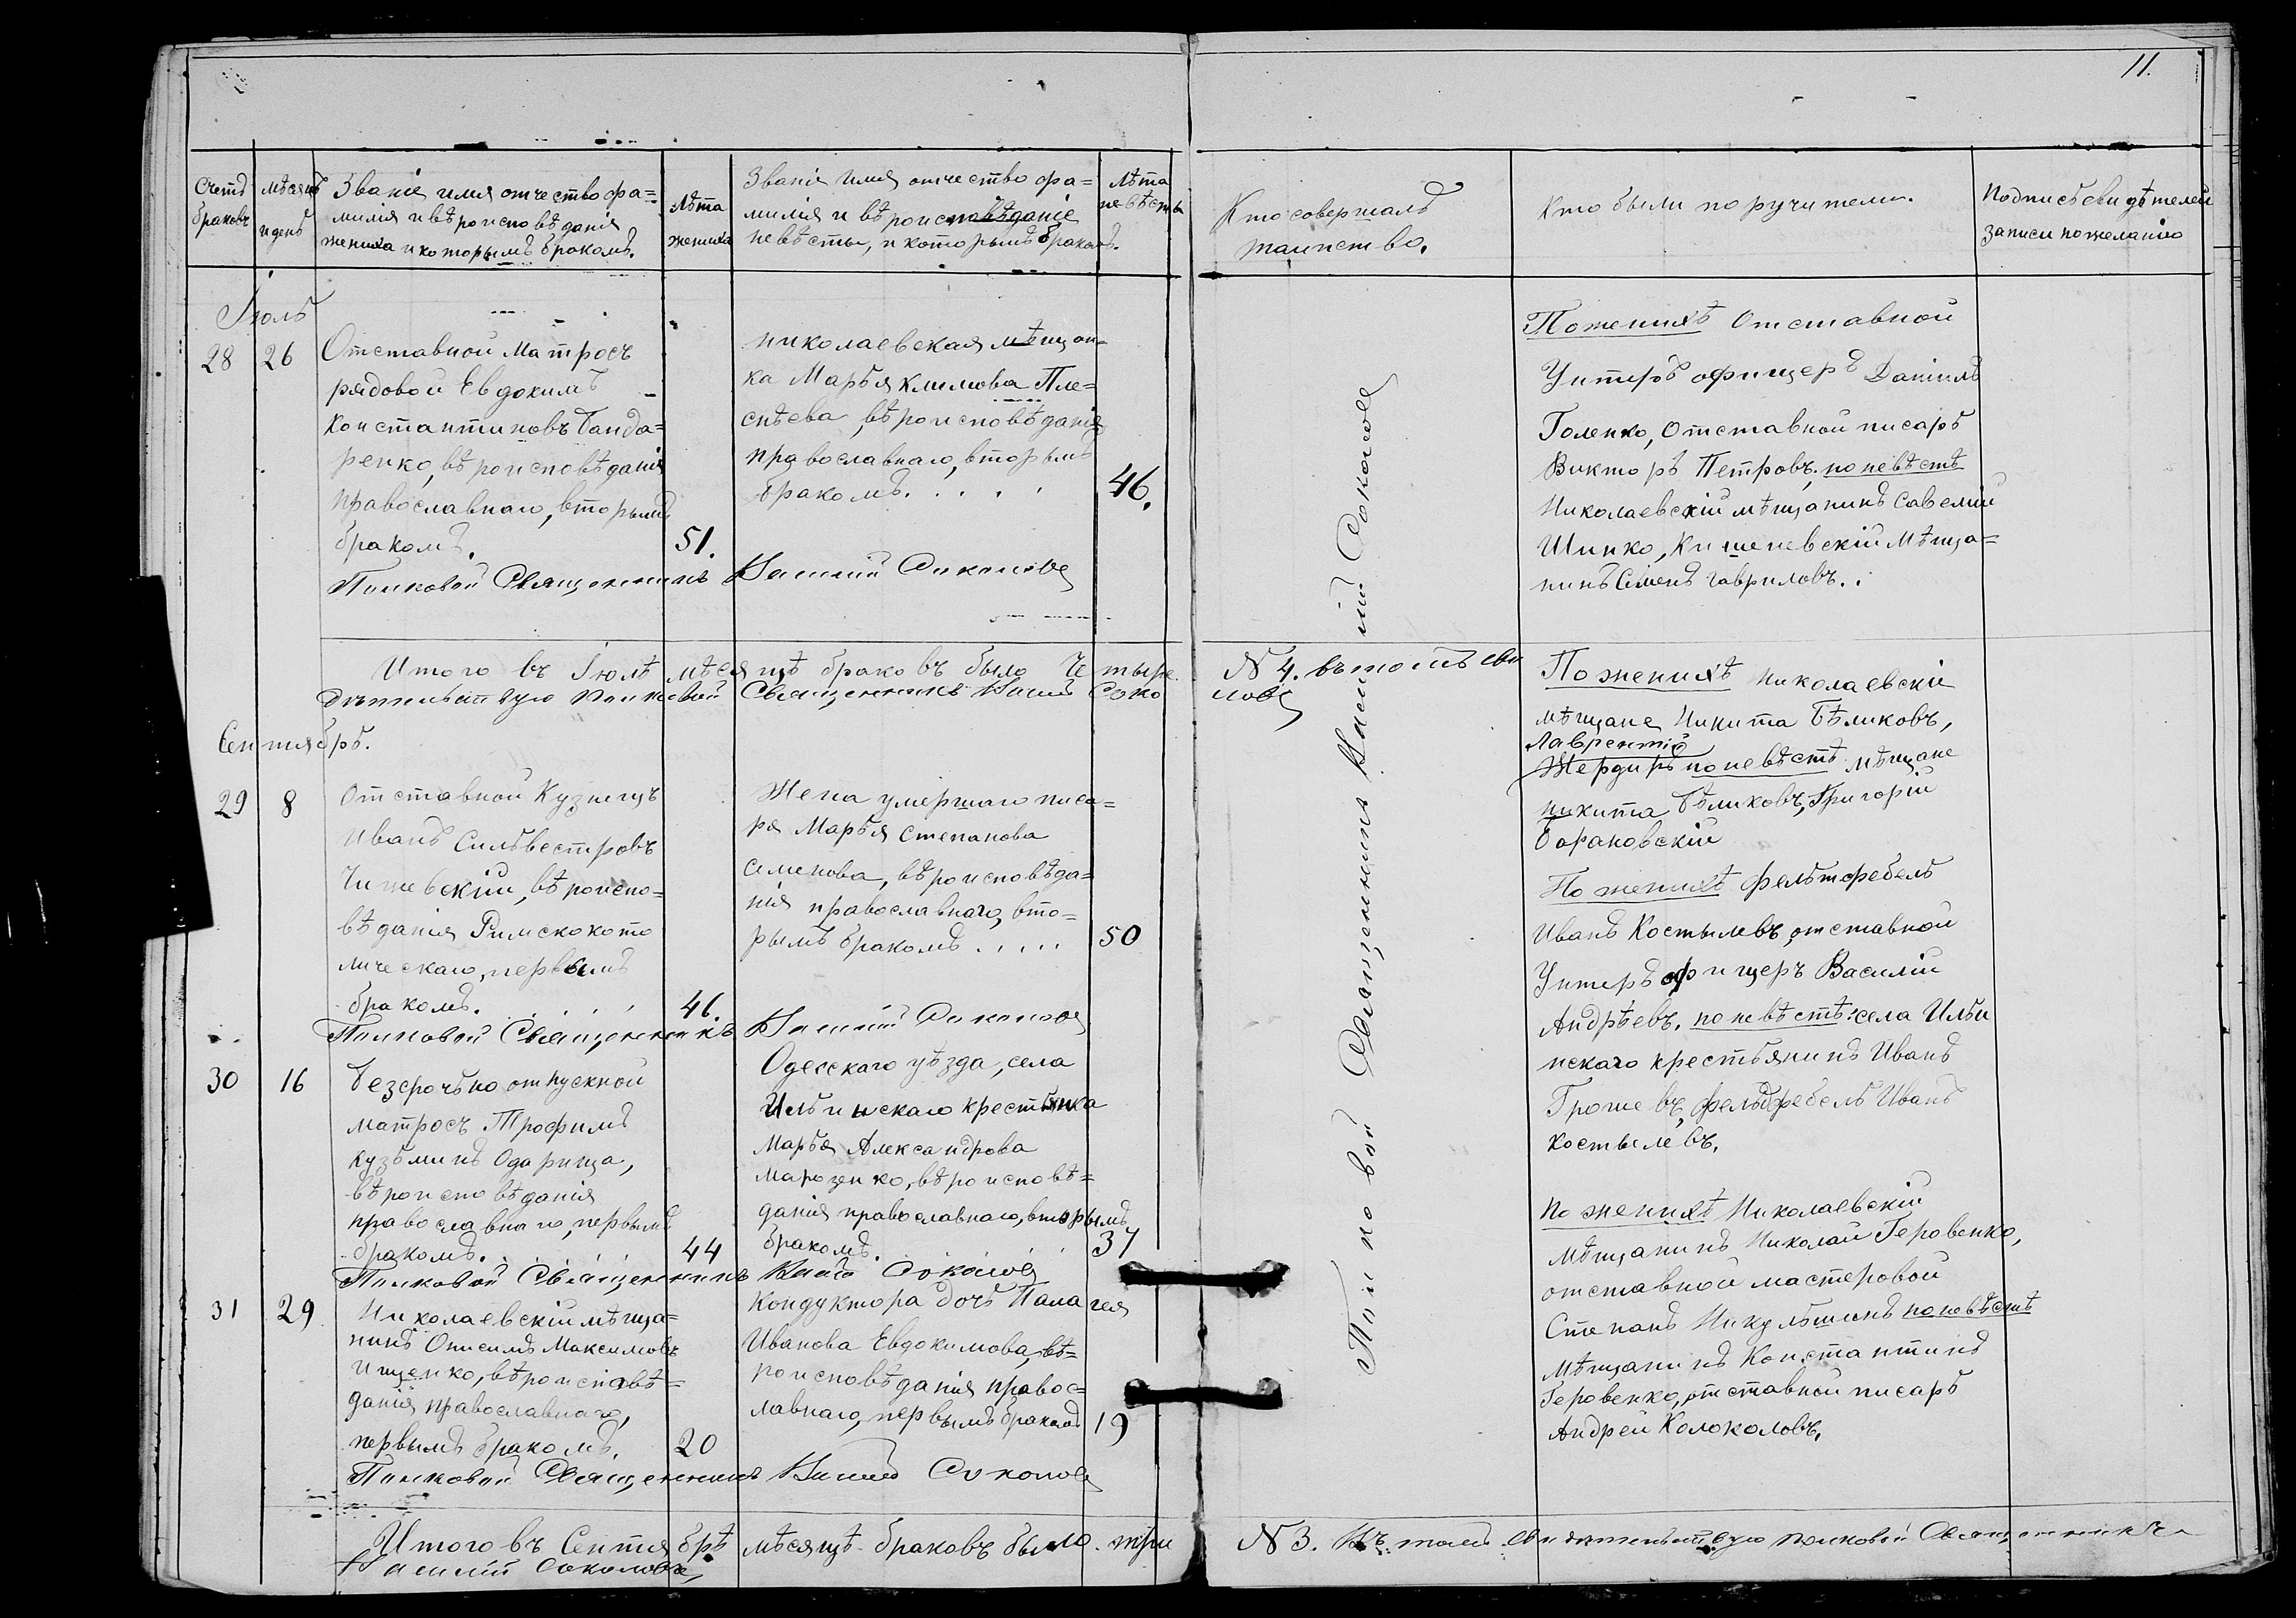 11.
Счетъ браковъ
мѣсяцъ и день
Званіе имя отчество фа=
милія и вѣроисповѣданія
жениха и которымъ бракомъ.
Лѣта
жениха
Званія имя отчество фа=
милія и вѣроисповѣданіе
невѣсты, и которымъ бракомъ.
Лѣта
невѣсты
Кто совершалъ
таинство.
Кто были поручители.
Подпись свидѣтелей
записи по желанію
Іюль
28
26
Отставной Матросъ
рядовой Евдокимъ
Константиновъ Банда=
ренко, вѣроисповѣданія
православнаго, вторымъ
бракомъ.
51.
николаевская мѣщан=
ка Марья Климова Пле=
снѣева, вѣроисповѣданія
православнаго, вторымъ
бракомъ. . . . .
46.
Полковой Священникъ Василій Соколовъ
Итого въ Іюлѣ мѣсяцѣ браковъ было Четыре. N 4. въ томъ сви
дѣтельствую Полковой Священникъ Василій Соколовъ
Сентябрь.
29
8
Отставной Кузнецъ
Иванъ Сильвестровъ
Чишевскій, вѣроиспо=
вѣданія Римскокато
лическаго, первымъ
бракомъ. . . . . .
46.
Жена умершаго писа=
ря Марья Степанова
Семенова, вѣроисповѣда=
нія православнаго, вто=
рымъ бракомъ . . . . .
50
Полковой Священникъ Василій Соколовъ
30
16
Безсрочьно отпускной
матросъ Трофимъ
Кузьминъ Одарища,
вѣроисповѣданія
православнаго, первымъ
бракомъ. . . . . .
44
Одесскаго уѣзда, села
Ильинскаго крестьянка
Марья Александрова
Марозенко, вѣроисповѣ=
данія православнаго, вторымъ
бракомъ. . . . .
37
Полковой Священникъ Василій Соколовъ
31
29
Николаевскій мѣща=
нинъ Онисимъ Максимовъ
Ищенко, вѣроисповѣ=
данія православнаго,
первымъ бракомъ.
20
Кондуктора дочь Палагея
Иванова Евдокимова, вѣ=
роисповѣданія правос=
лавнаго, первымъ бракомъ
19
Полковой Священникъ Василій Соколовъ
Итого въ Сентябрѣ мѣсяцѣ браковъ было три N 3. Въ томъ свидѣтельствую полковой Священникъ
Василій Соколовъ,
Полковой Священникъ Василій Соколовъ
По женихѣ Отставной
Унтеръ офицеръ Даніилъ
Голенко, Отставной писарь
Викторъ Петровъ, по невѣстѣ
Николаевскій мѣщанинъ Савелій
Шинко, Кишеневскій Мѣща=
нинъ Семенъ Гавриловъ. .
По женихѣ Николаевскіе
мѣщане Никита Бѣликовъ,
Лаврентій
Жердиръ по невѣстѣ мѣщане
Никита Бѣликовъ, Григорій
Барановскій
По женихѣ фельтфебель
Иванъ Костылевъ, отставной
Унтеръ офицеръ Василій
Андрѣевъ. по невѣстѣ: села Ильи
нскаго крестьянинъ Иванъ
Грошевъ, фельдфебель Иванъ
Костылевъ.
По женихѣ Николаевскій
Мѣщанинъ Николай Геровенко,
отставной мастеровой
Степанъ Никульшинъ по невѣстѣ
Мѣщанинъ Константинъ
Геровенко, отставной писарь
Андрей Колоколовъ.